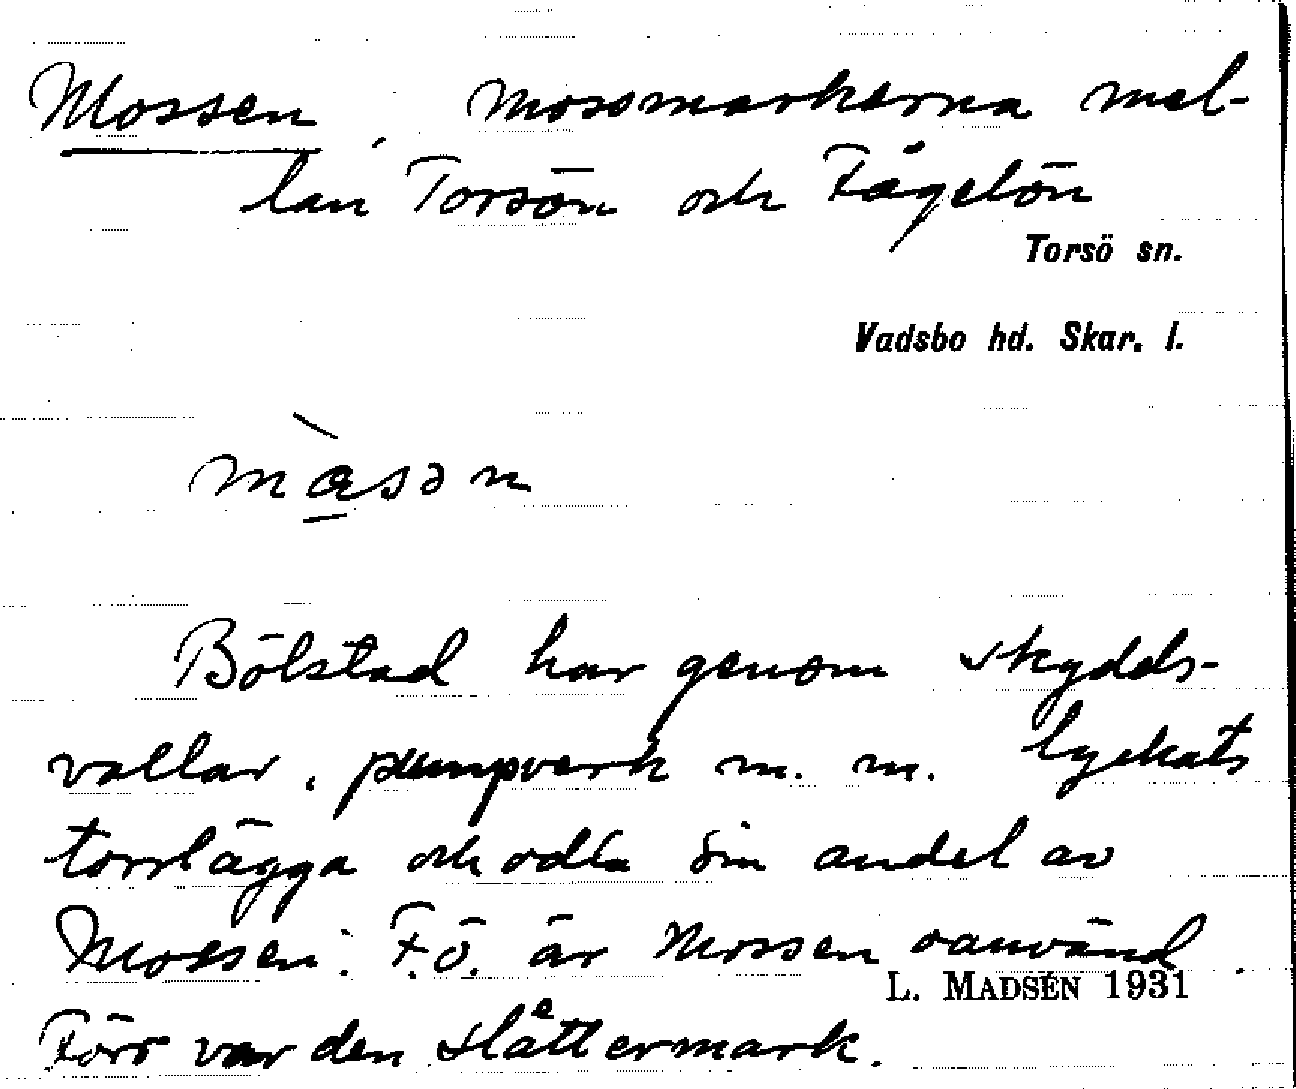 Mossen, mossmarkerna mel-
lan Torsön och Fågelön
Torsö sn.
Vadsbo hd. Skar. l.
m̀a̲sən
Bölstad har genom skydds-
vallar, pumpverk m. m. lyckats
torrlägga och odla sin andel av
Mossen. F.ö. är Mossen oanvänd.
L. MADSÉN 1931
Förr var den slåttermark.